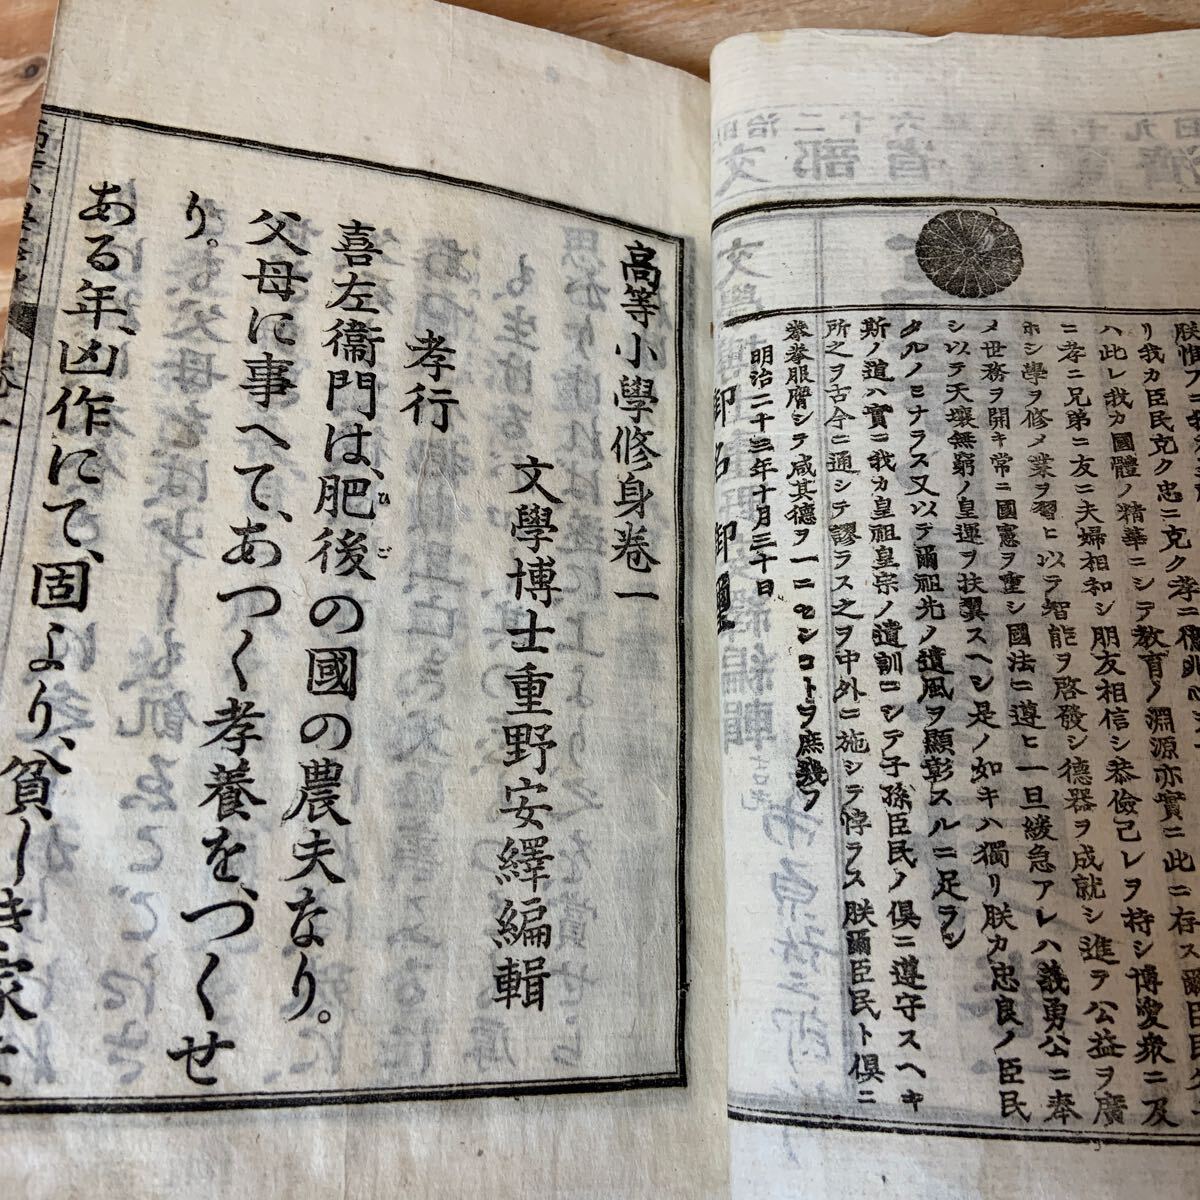 朕惟フニ我
リ我カ臣民克ク忠ニ克ク孝ニ億兆心
ハ此レ我カ國體ノ精華ニシテ教育ノ淵源亦實ニ此ニ存ス爾臣民父
ニ孝ニ兄弟ニ友ニ夫婦相和シ朋友相信シ恭儉己レヲ持シ博愛衆ニ及
ホシ學ヲ修メ業ヲ習ヒ以テ智能ヲ啓發シ德器ヲ成就シ進テ公益ヲ廣
メ世務ヲ開キ常ニ國憲ヲ重シ國法ニ遵ヒ一旦緩急アレハ義勇公ニ奉
シ以テ天壤無窮ノ皇運ヲ扶翼スヘシ是ノ如キハ獨リ朕カ忠良ノ臣民
タルノミナラス又以テ爾祖先ノ遺風ヲ顯彰スルニ足ラン
斯ノ道ハ實ニ我カ皇祖皇宗ノ遺訓ニシテ子孫臣民ノ俱ニ遵守スヘキ
所之ヲ古今ニ通シテ謬ラス之ヲ中外ニ施シテ悖ラス朕爾臣民ト俱ニ
拳拳服膺シテ咸其德ヲ一ニセンコトヲ庶幾フ
明治二十三年十月三十日
御名御璽
高等小學修身卷一
文學博士重野安繹編輯
孝行
喜左衞門は、肥後の國の農夫なり。
ひご
父母に事へて、あつく孝養を、つくせ
り。
ある年、凶作にて、固より、貧しき家